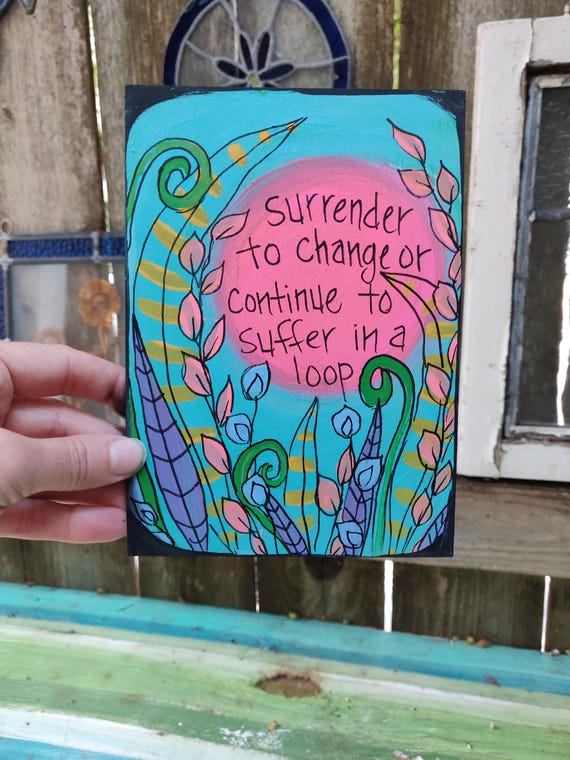 Surrender
to Change or
Continue to
Suffer in a
loop